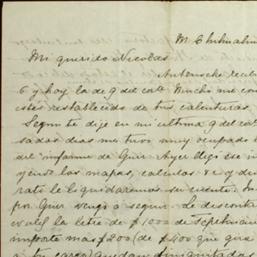 M. Chihuahua
Mi querido Nicolas
Antenoche recibi
6 y hoy la de 9 del cotē. Mucho me con
estés restablecido de tus calenturas.
Segun te dije en mi última 9 del cot
sados dias me tuvo muy ocupado
del informe de Guir. Ayer dejé ese in
yendo los mapas, calculos &c y des
rato le liquidaremos su cuenta.
por Guir vengo á seguir de descont
la letra de $1000 de Septiembre
importe mas $200 (de $400 que
á tu cargo) quedan finiquitados